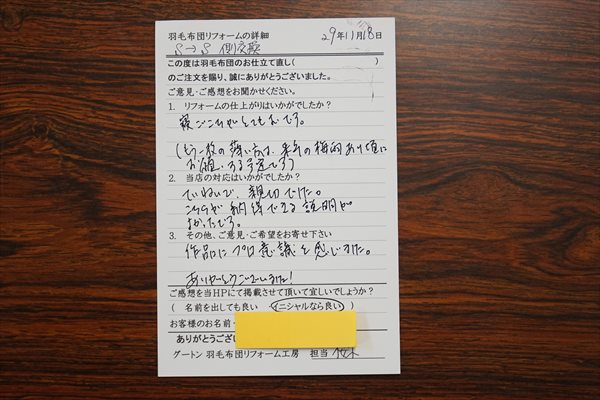 羽毛布団リフォームの詳細 29年11月18日
S→S 側交換
この度は羽毛布団のお仕立て直し( )
のご注文を賜り、誠にありがとうございました。
ご意見・ご感想をお聞かせください。
1. リフォームの仕上がりはいかがでしたか?
寝ごこちがとてもよいです。
(もう一枚の薄い方は、来年の梅雨あけ頃に
お願いする予定です)
2. 当店の対応はいかがでしたか?
ていねいで、親切でした。
こちらが納得できる説明が
よかったです。
3. その他、ご意見・ご希望をお寄せ下さい
作品にプロ意識を感じました。
ありがとうございました!
ご感想を当HPにて掲載させて頂いて宜しいでしょうか?
( 名前を出しても良い イニシャルなら良い )
お客様のお名前・
ありがとうござい
グートン 羽毛布団リフォーム工房 担当